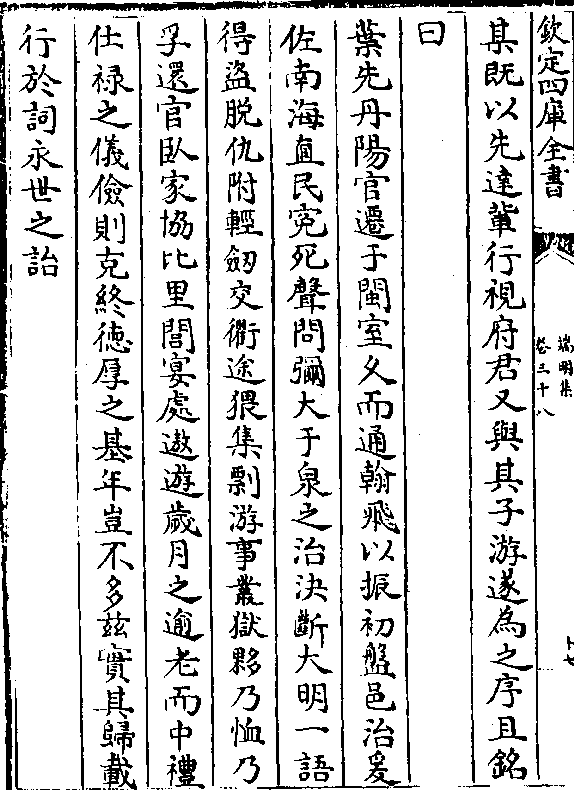 欽定四庫全書
端明集
卷三十八
十七
某既以先達輩行視府君又與其子游遂為之序且銘
曰
葉先丹陽官遷于閩室久而通翰飛以振初盤邑治爰
佐南海直民寃死聲問彌大于泉之治決斷大明一語
得盜脫仇附輕劒交衢途猥集剽游事叢獄夥乃恤乃
孚還官臥家協比里閭宴處遨遊歲月之逾老而中禮
仕禄之儀儉則克終徳厚之基年豈不多兹實其歸載
行於詞永世之詒